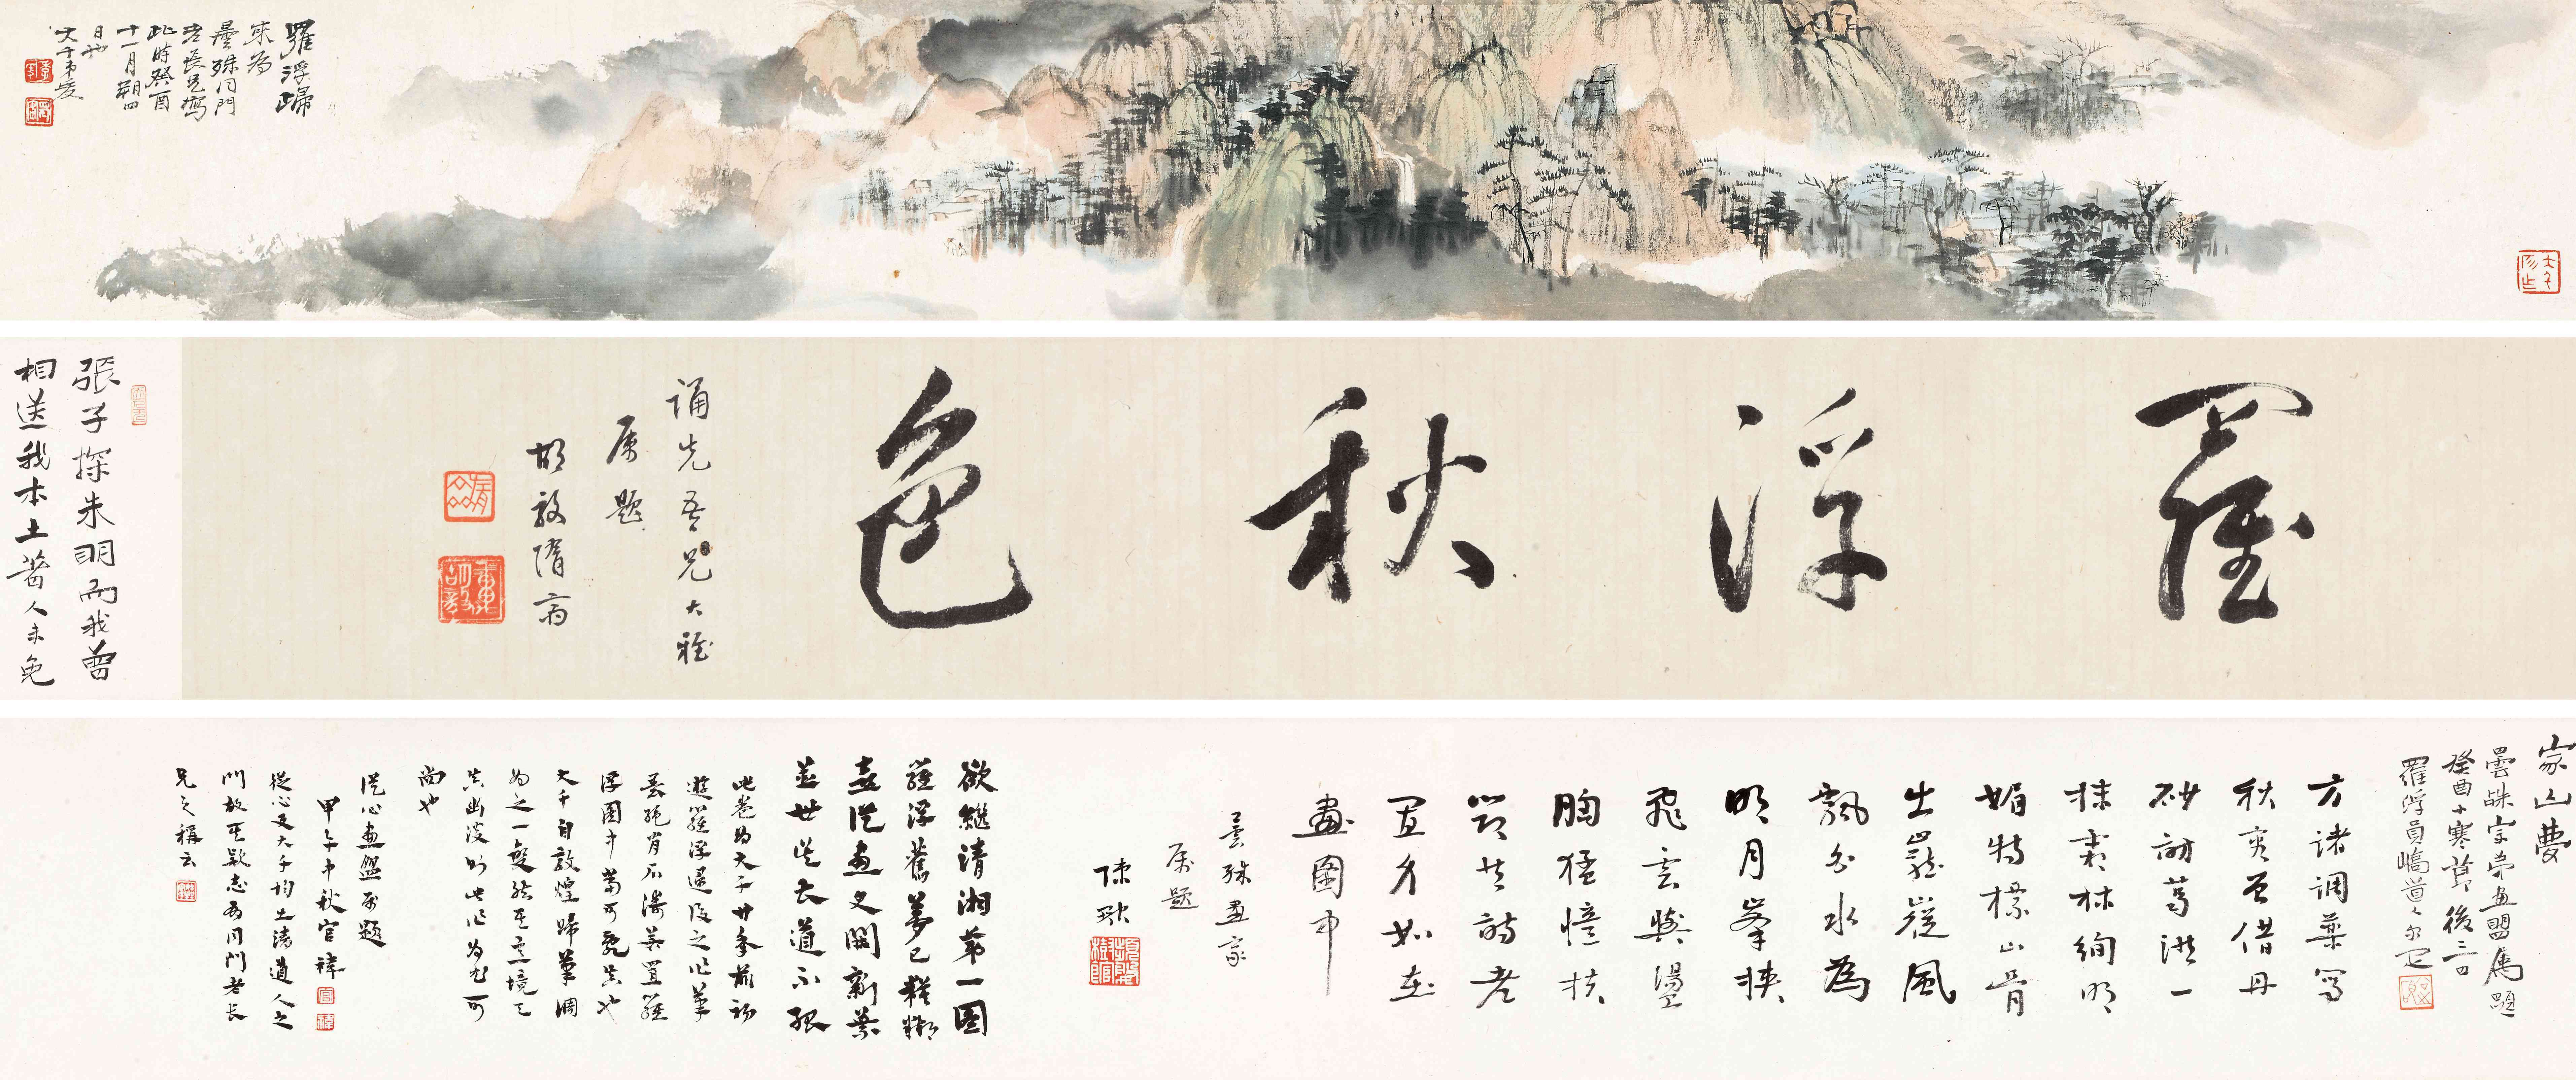 羅浮歸
來爲
曇殊同門
老長兄寫
此時癸酉
十一月朔四
日也
大千弟爰
羅浮秋色
誦先吾兄大雅
屬題
胡毅隋齋
張子探朱明而我曾
相送我本土著人未免
家山夢
曇殊宗弟畫盟屬題
癸酉小寒節後三日
羅浮員嶠道人尔疋
方諸調藥寫
秋容不借丹
砂訪葛洪一
抹霜林絢明
媚特標山骨
出巃嵷風
飄瀑水為
明月峯挾
飛雲與盪
胸猛憶扶
笻黄龍老
置身如在
畫圖中
曇殊畫家
屬題
陳融
欲繼清湘第一圖
羅浮舊夢已模糊
喜從畫史開新葉
並世從大道不孤
此卷為大千廿年前初
遊羅浮還後之作筆
墨純肖石濤若置羅
浮圖中當可亂真也
大千自敦煌歸筆調
為之一變然其意境之
幽深則此作為尤可
尚也
從心畫盟屬題
甲午中秋官禕
從心及大千均出清道人之
門故其款志為同門老長
兄之稱云